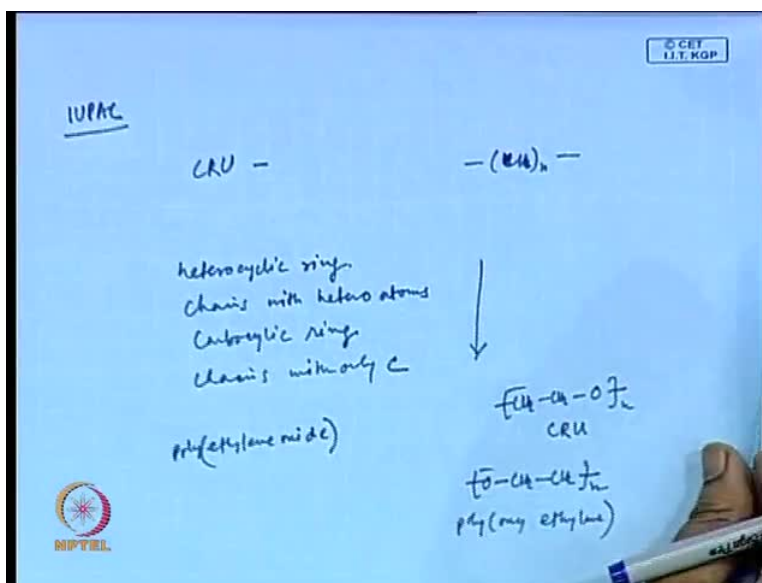 © CET
I.I.T. KGP
IUPAC
CRU -
-( )n-
heterocyclic ring
Chains with hetero atoms
Carbocylic ring
Chains with only C
-[CH-CH-O]-n
CRU
poly(ethylene oxide)
-[O-CH-CH]-n
poly(oxy ethylene)
NPTEL